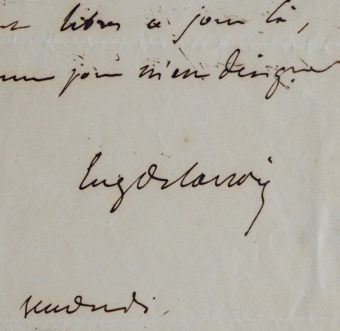 libre ce jour là,
jour m'en
EugDelacroix
vendredi.